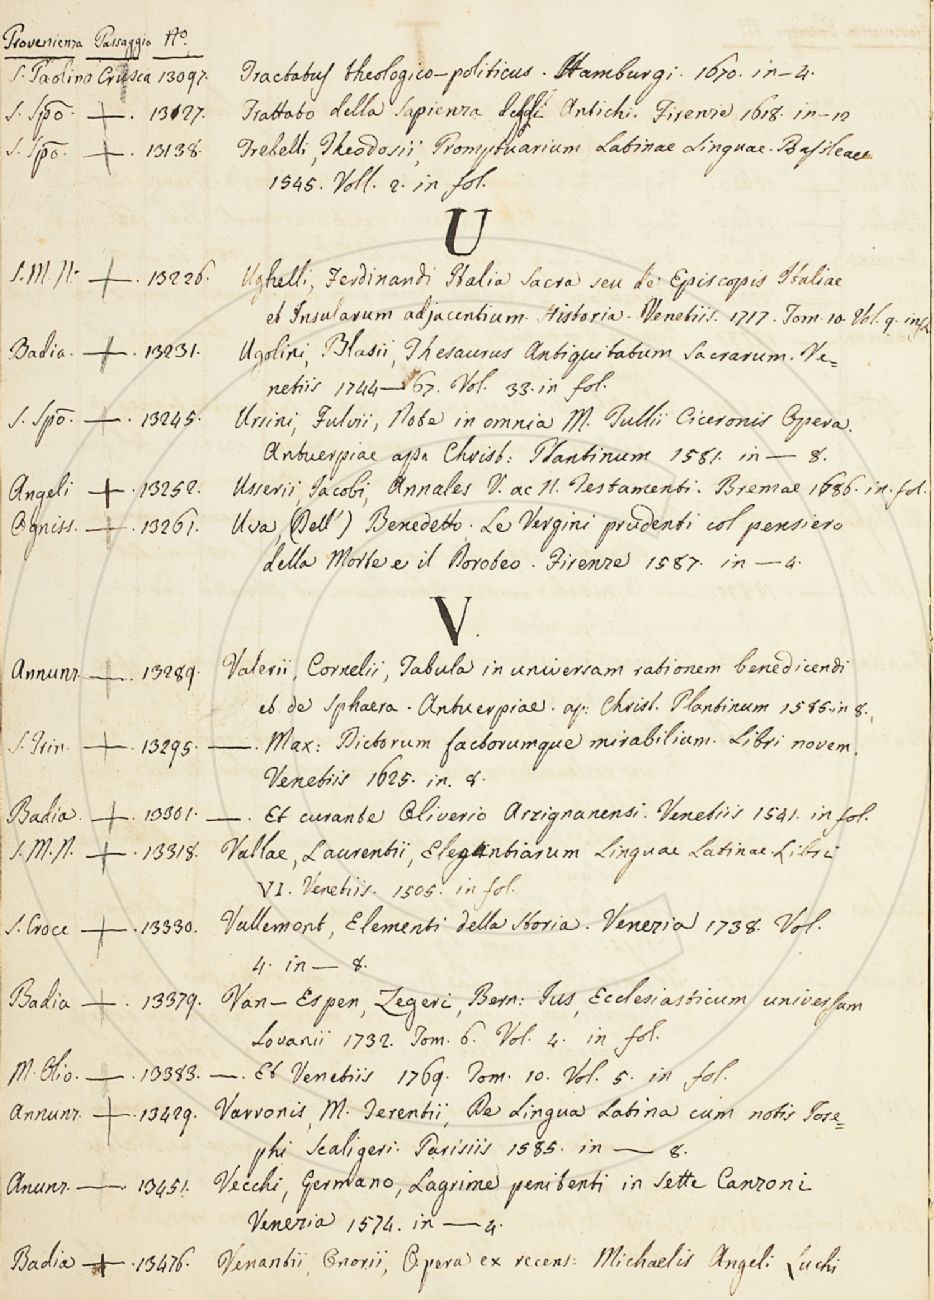 Provenienza Passaggio Nº.
S. Paolino Crusca 13097. Tractatus theologico-politicus. Hamburgi. 1670. in-4.
S. Spõ. + . 13127. Trattato della Sapienza degli Antichi. Firenze 1618. in-12
S. Spõ. + . 13138. Trebelli, Theodosii, Promptuarium Latinae Linguae. Basileae
1545. Voll. 2. in fol.
U
S.M.N. + . 13226. Ughelli, Ferdinandi Italia Sacra seu de Episcopis Italiae
et Insularum adjacentium. Historia. Venetiis. 1717. Tom. 10. Vol. 9. in fol.
Badia. + . 13231. Ugolini, Blasii, Thesaurus Antiquitatum Sacrarum. Ve=
netiis 1744—67. Vol. 33. in fol.
S. Spõ. — . 13245. Ursini, Fulvii, Nota in omnia M. Tullii Ciceronis Opera.
Antuerpiae apa Christ: Plantinum 1581. in — 8.
Angeli + . 13252. Usserii, Jacobi, Annales V. ac N. Testamenti. Bremae 1686. in. fol.
Ogniss. — . 13261. Uva, (Dell') Benedetto. Le Vergini prudenti col pensiero
della Morte e il Doroteo. Firenze 1587. in — 4.
V.
Annunz. — . 13289. Valerii, Cornelii, Tabula in universam rationem benedicendi
et de Sphaera. Antuerpiae. ap: Christ. Plantinum 1585. in 8.
S. Trin. + . 13295. — . Max: Dictorum factorumque mirabilium. Libri novem.
Venetiis 1625. in. 8.
Badia. + . 13301. — . Et curante Oliverio Arzignanensi. Venetiis 1541. in fol.
S.M.N. + . 13318. Vallae, Laurentii, Elegantiarum Linguae Latinae Libri
VI. Venetiis. 1505. in fol.
S. Croce + . 13330. Vallemont, Elementi della Storia. Venezia 1738. Vol.
4. in — 8.
Badia + . 13379. Van-Espen, Zegeri, Bern: Jus, Ecclesiasticum universam
Lovanii 1732. Tom. 6. Vol. 4. in fol.
M. Olio. — . 13383. — . Et Venetiis 1769. Tom. 10. Vol. 5. in fol.
Annunz. + . 13429. Varronis, M. Terentii, De Lingua Latina cum notis Jose=
phi Scaligeri. Parisiis 1585. in — 8.
Anunz. — . 13451. Vecchi, Germano, Lagrime penitenti in Sette Canzoni
Venezia 1574. in — 4.
Badia + . 13476. Venantii, Onorii, Opera ex recens: Michaelis Angeli Luchi